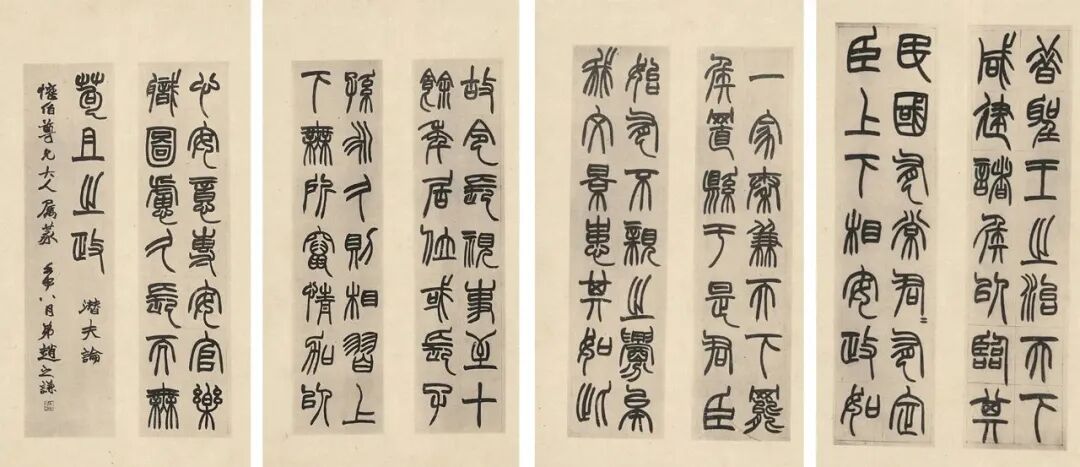 昔聖王之治天下
咸建諸侯以臨其
民國有常君〻有定
臣上下相安政如
一家秦兼天下罷
侯置縣于是君臣
始有不親之釁矣
我文景患其如此
故令長視事至十
餘年居位或長子
孫永久則相習上
下無所竄情加以
心安意專安官樂
職圖慮久長而無
苟且之政 潛夫論
伯尊兄大人屬篆 壬申八月弟趙之謙